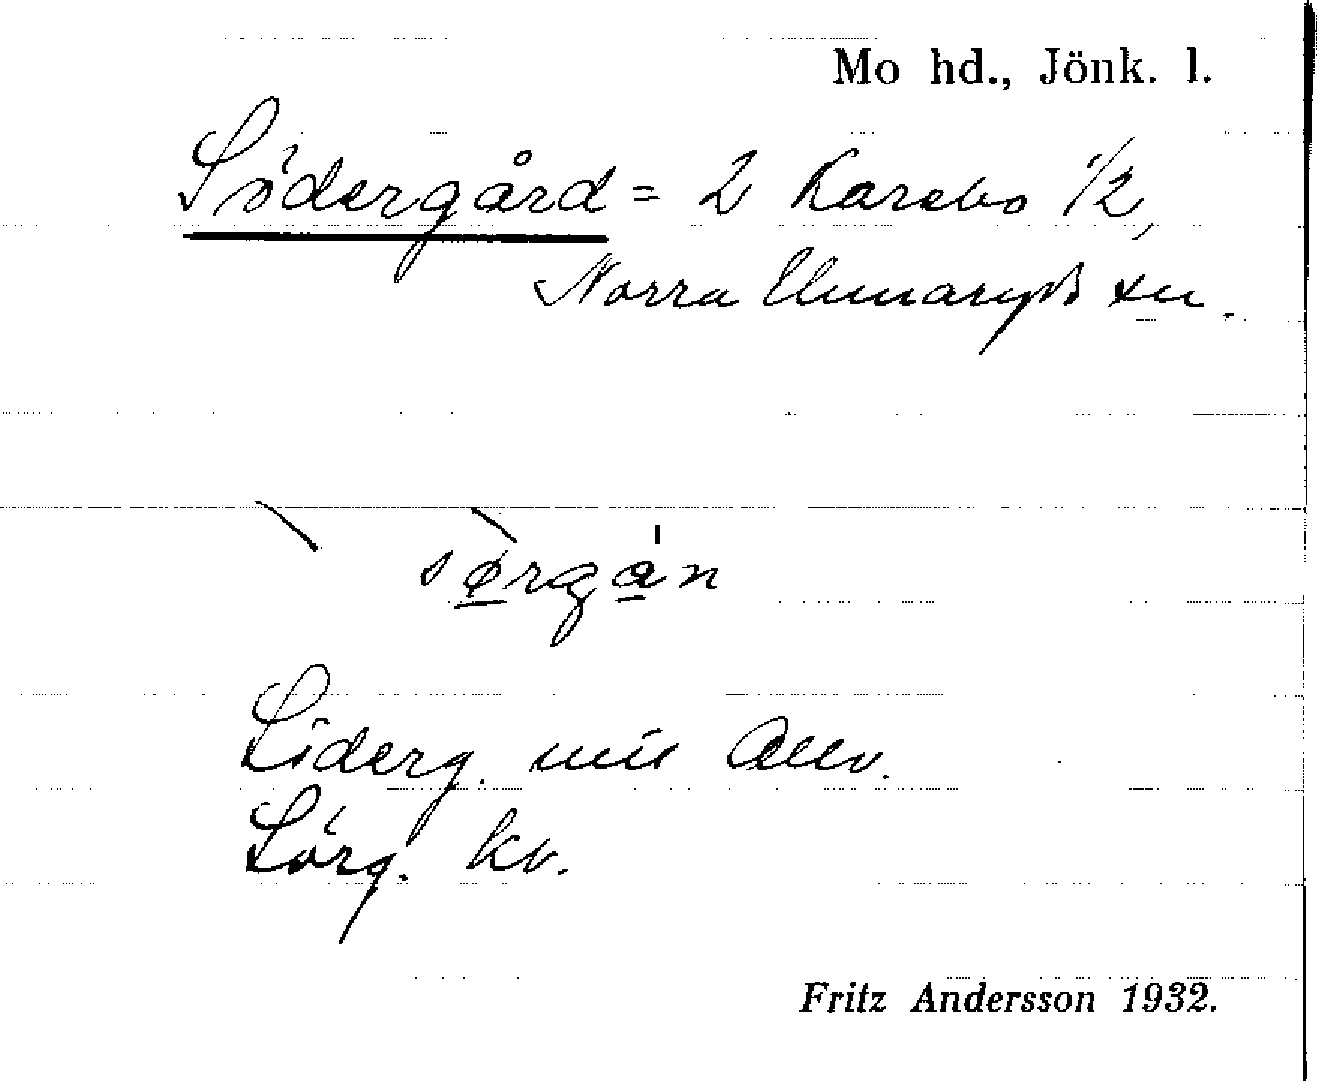 Mo hd., Jönk. l.
Södergård = 2 Karebo 1/2,
Norra Unnaryds sn.
sørgan
Söderg. mtl Allv.
Sörg. kv.
Fritz Andersson 1932.